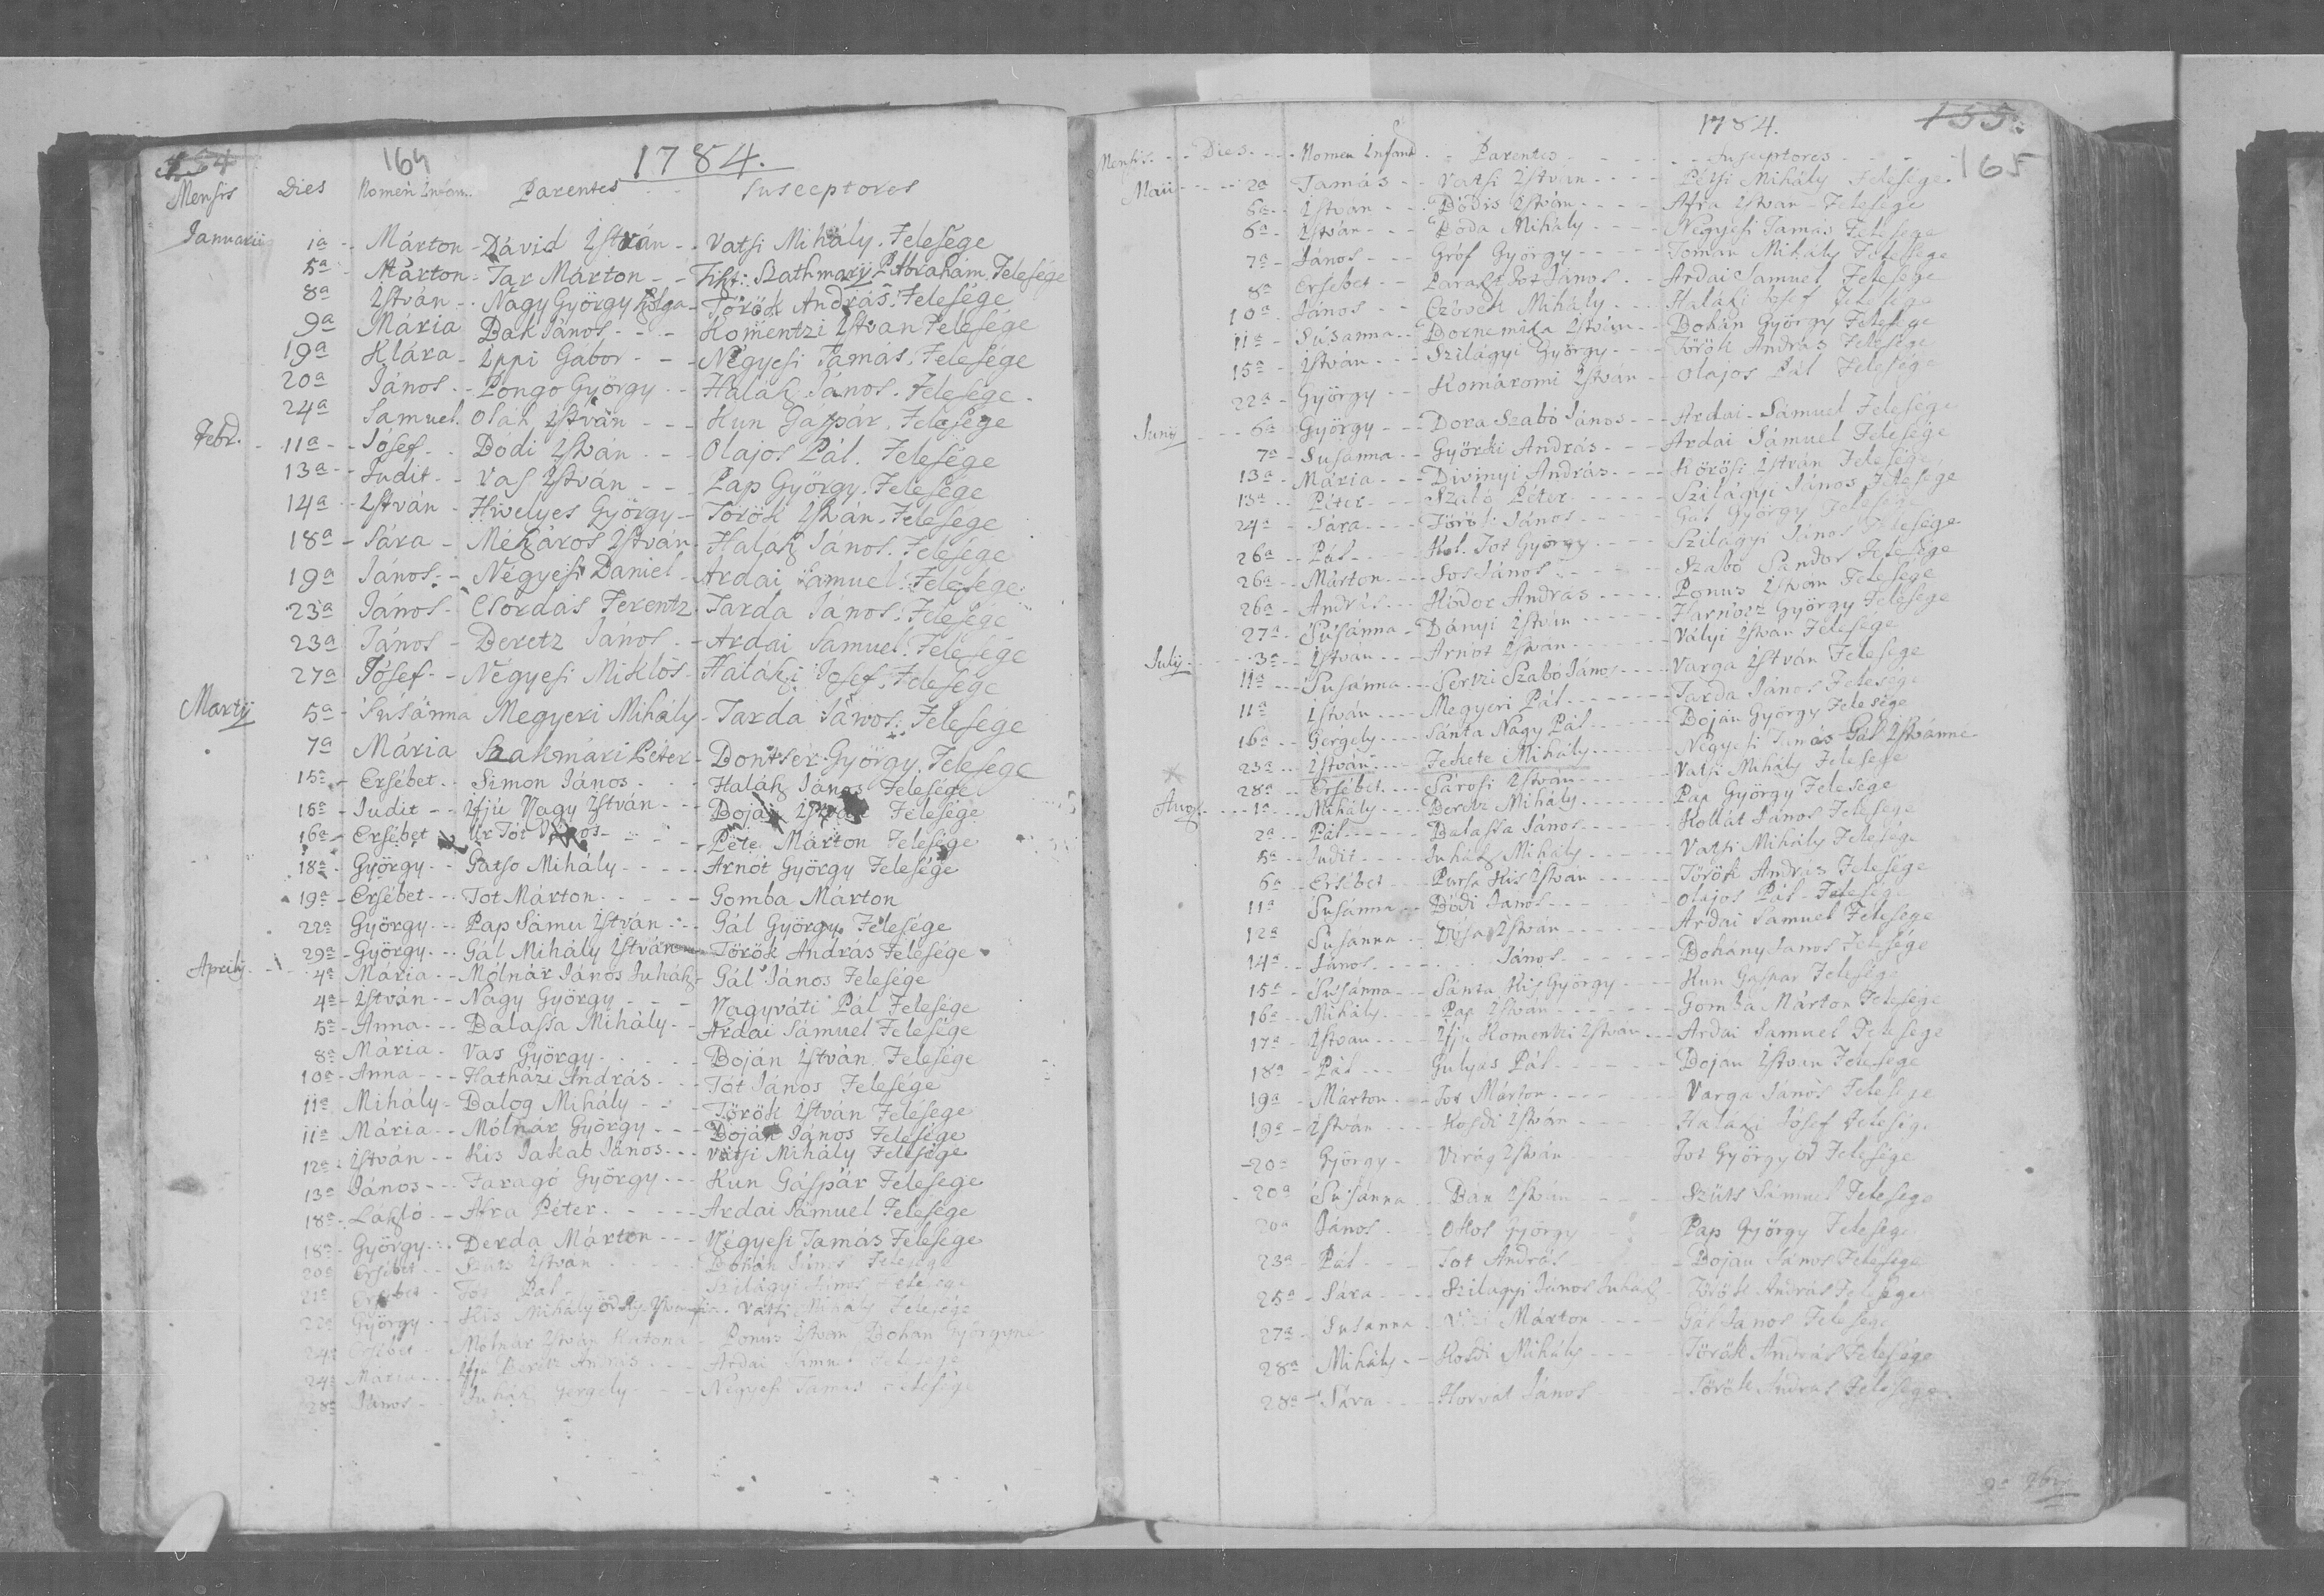 154
164
1784.
Mensis Dies Nomen Infan. Parentes Susceptores
Januarii 1a Márton Dávid István Vatsi Mihály Felesége
5a Márton Tar Márton Tiszt: Szathmarÿ P. Abrahám Felesége
8a István Nagy György Török András Felesége
9a Mária Bak János Komentzi István Felesége
19a Klára Ippi Gábor Négyesi Tamás Felesége
20a János Pongo György Halász János Felesége
24a Samuel Oláh István Kun Gáspár Felesége
Febr. 11a Jósef Dódi István Olajos Pál Felesége
13a Judit Vas István Pap György Felesége
14a István Hüvelyes György Török István Felesége
18a Sára Mészáros István Halász János Felesége
19a János Négyesi Daniel Ardai Samuel Felesége
23a János Csordás Ferentz Tarda János Felesége
23a János Beretz János Ardai Samuel Felesége
27a Jósef Négyesi Miklós Halászi Josef Felesége
Martij 5a Susánna Megyeri Mihály Tarda János Felesége
7a Mária Szakmári Péter Dontsér György Felesége
15a Ersébet Simon János Halász János Felesége
15a Judit Ifjú Nagy István Boján István Felesége
16a Ersébet Ur Tót Péte Márton Felesége
18a György Gatso Mihály Arnót György Felesége
19a Ersébet Tot Márton Gomba Márton
22a György Pap Sámu István Gál György Felesége
29a György Gál Mihály István Török András Felesége
Aprilij 4a Mária Mólnár János Juhász Gál János Felesége
4a István Nagy György Nagyváti Pál Felesége
5a Anna Balassa Mihály Ardai Sámuel Felesége
8a Mária Vas György Boján István Felesége
10a Anna Hatházi András Tót János Felesége
11a Mihály Balog Mihály Török István Felesége
11a Mária Mólnár György Boján János Felesége
12a István Kis Jakab János Vatsi Mihály Felesége
13a János Faragó György Kun Gáspár Felesége
18a László Afra Péter Ardai Sámuel Felesége
18a György Derda Márton Négyesi Tamás Felesége
20a Ersébet Szüts István Bohán János Felesége
21a Ersébet Tot Pál Szilágyi János Felesége
22a György Kis Mihály Vatsi Mihály Felesége
24a Ersébet Mólnár István Katona Ponus István Bohán Györgyné
24a Mária Ifju Beretz András Ardai Samuel Felesége
28a János Juhász Gergely Négyesi Tamás Felesége
155
165
1784.
Mensis Dies Nomen Infant. Parentes Susceptores
Maii 2a Tamás Vatsi István Pétsi Mihály Felesége
6a István Dódis István Afra István Felesége
6a István Dóda Mihály Négyesi Tamás Felesége
7a János Gróf György Toman Mihály Felesége
8a Ersébet Paraszt Tot János Ardai Samuel Felesége
10a János Czövek Mihály Halászi Josef Felesége
11a Susánna Bornemisza István Bohán György Felesége
15a István Szilágyi György Török András Felesége
22a György Komáromi István Olajos Pál Felesége
Junij 6a György Dora Szabó János Ardai Sámuel Felesége
7a Susánna Györki András Ardai Sámuel Felesége
13a Mária Divinyi András Körösi István Felesége
13a Péter Szabó Péter Szilágyi János Felesége
24a Sára Töröli János Gál György Felesége
26a Pál Kol. Tot György Szilágyi János Felesége
26a Márton Sos János Szabó Sandor Felesége
26a András Hódor András Ponus István Felesége
27a Susánna Dányi István Harnosz György Felesége
Julij 3a István Arnót István Vályi István Felesége
11a Susánna Szabó János Varga István Felesége
11a István Megyeri Pál Tarda János Felesége
16a Gergely Sánta Nagy Pál Boján György Felesége
23a István Fekete Mihály Négyesi Tamás Gál Istvánné
28a Ersébet Sárosi István Vatsi Mihály Felesége
Aug. 1a Mihály Beretz Mihály Pap György Felesége
2a Pál Balassa János Kollát János Felesége
5a Judit Juhász Mihály Vatsi Mihály Felesége
6a Ersébet Kis István Török András Felesége
11a Susánna Dódi János Olajos Pál Felesége
12a Susánna Dósa István Ardai Samuel Felesége
14a János János Bohány Janos Felesége
15a Susánna Sánta Kis György Kun Gáspár Felesége
16a Mihály Pap István Gomba Márton Felesége
17a István Ifju Komentzi István Ardai Samuel Felesége
18a Pál Gulyás Pál Boján István Felesége
19a Márton Tot Márton Varga János Felesége
19a István Kosdi István Halászi Jósef Felesége
20a György Virág István Tot György Felesége
20a Susánna Bán István Szüts Sámuel Felesége
20a János Okos György Pap György Felesége
23a Pál Tot András Boján János Felesége
25a Sára Szilágyi János Juhász Török András Felesége
27a Susanna Vizi Márton Gál János Felesége
28a Mihály Kosdi Mihály Török András Felesége
28a Sára Horvát János Török András Felesége